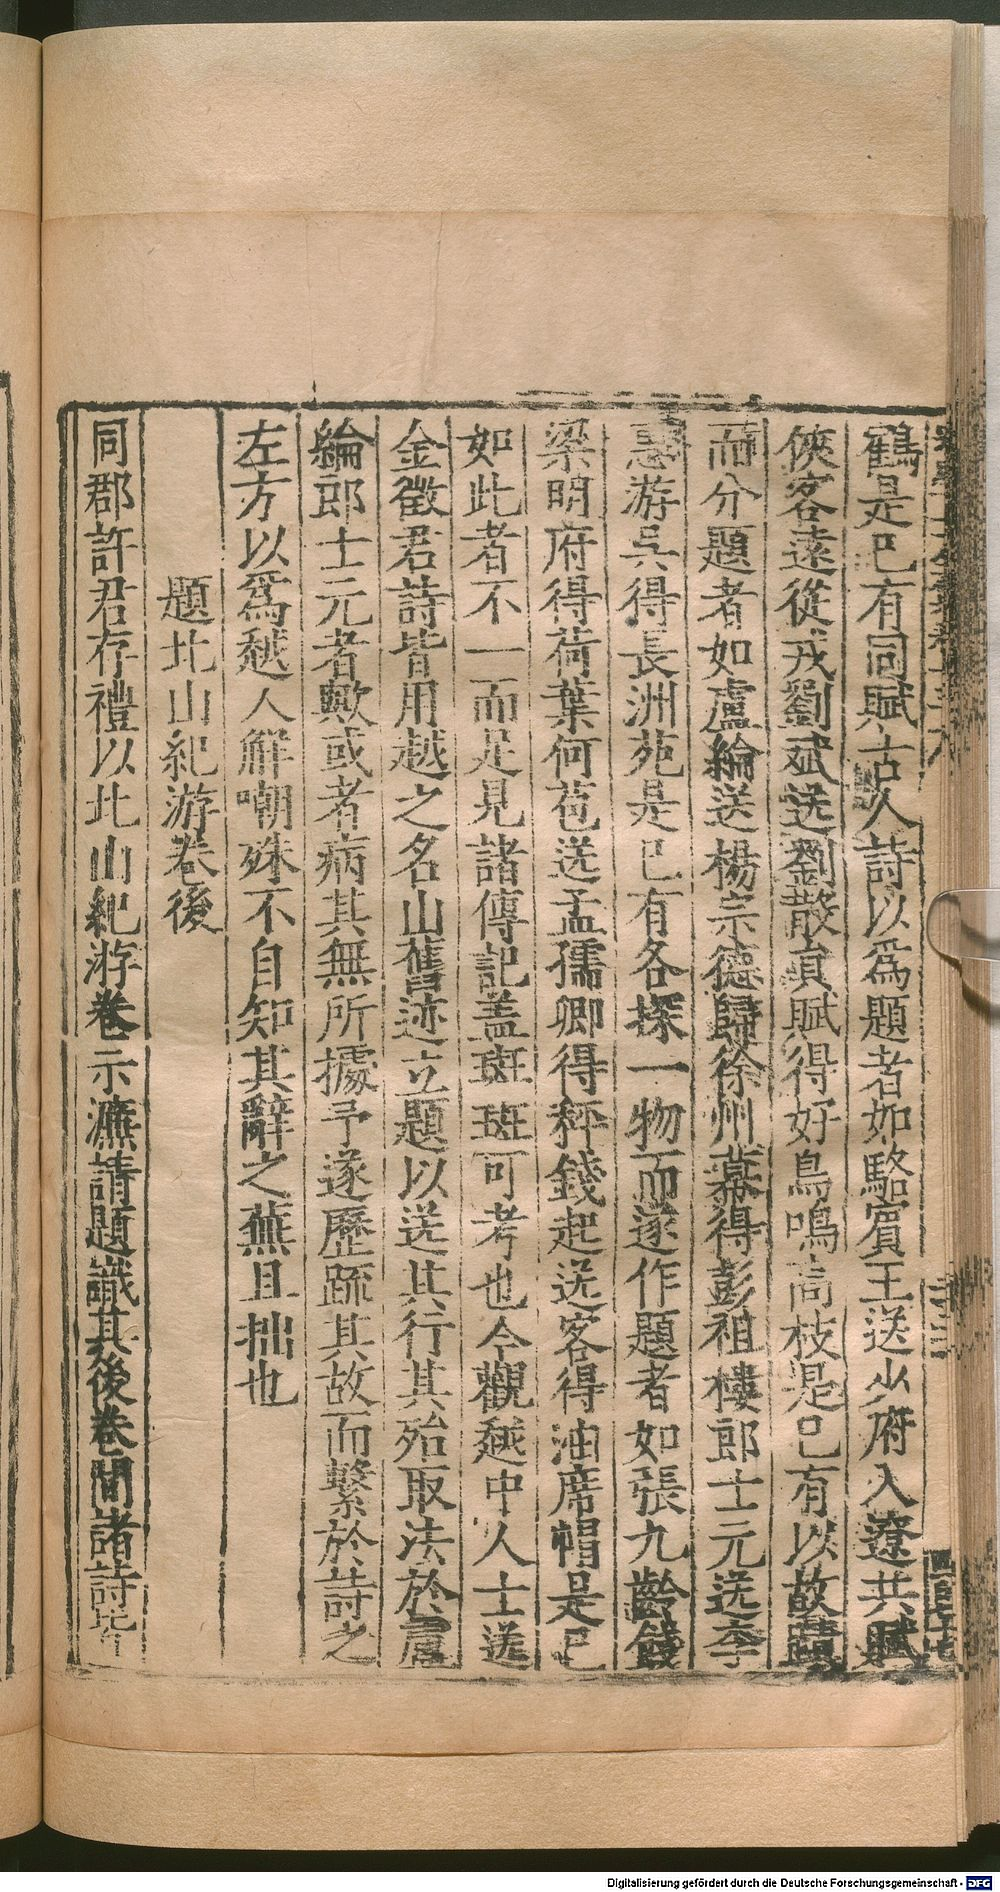 鶴是已有同賦古人詩以爲題者如駱賓王送少府入遼共賦
俠客遠從戎劉斌送劉散員賦得好鳥鳴高枝是已有以故蹟
而分題者如盧綸送楊宗德歸徐州幕得彭祖樓郎士元送李
惠游吳得長洲苑是已有各探一物而遂作題者如張九齡餞
梁明府得荷葉何苞送孟孺卿得秤錢起送客得油席帽是已
如此者不一而足見諸傳記蓋班班可考也今觀越中人士送
金徵君詩皆用越之名山舊迹立題以送其行其殆取法於盧
綸郎士元者歟或者病其無所據予遂歷疏其故而繫於詩之
左方以爲越人解嘲殊不自知其辭之蕪且拙也
題北山紀游卷後
同郡許君存禮以北山紀游卷示濂請題識其後卷間諸詩皆
Digitalisierung gefördert durch die Deutsche Forschungsgemeinschaft - DFG